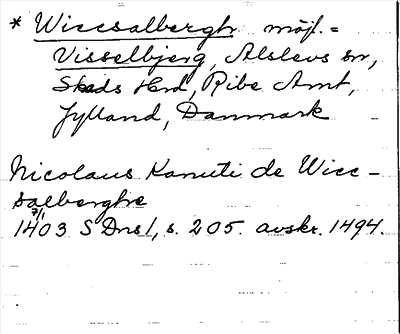 * Wiccsalbergh möjl. =
Visselbjerg, Alslevs sn,
Skads Hrd, Ribe Amt,
Jylland, Danmark
Nicolaus Kanuti de Wicc-
salberghe
1403 7/1 SDns 1, s. 205. avskr. 1494.